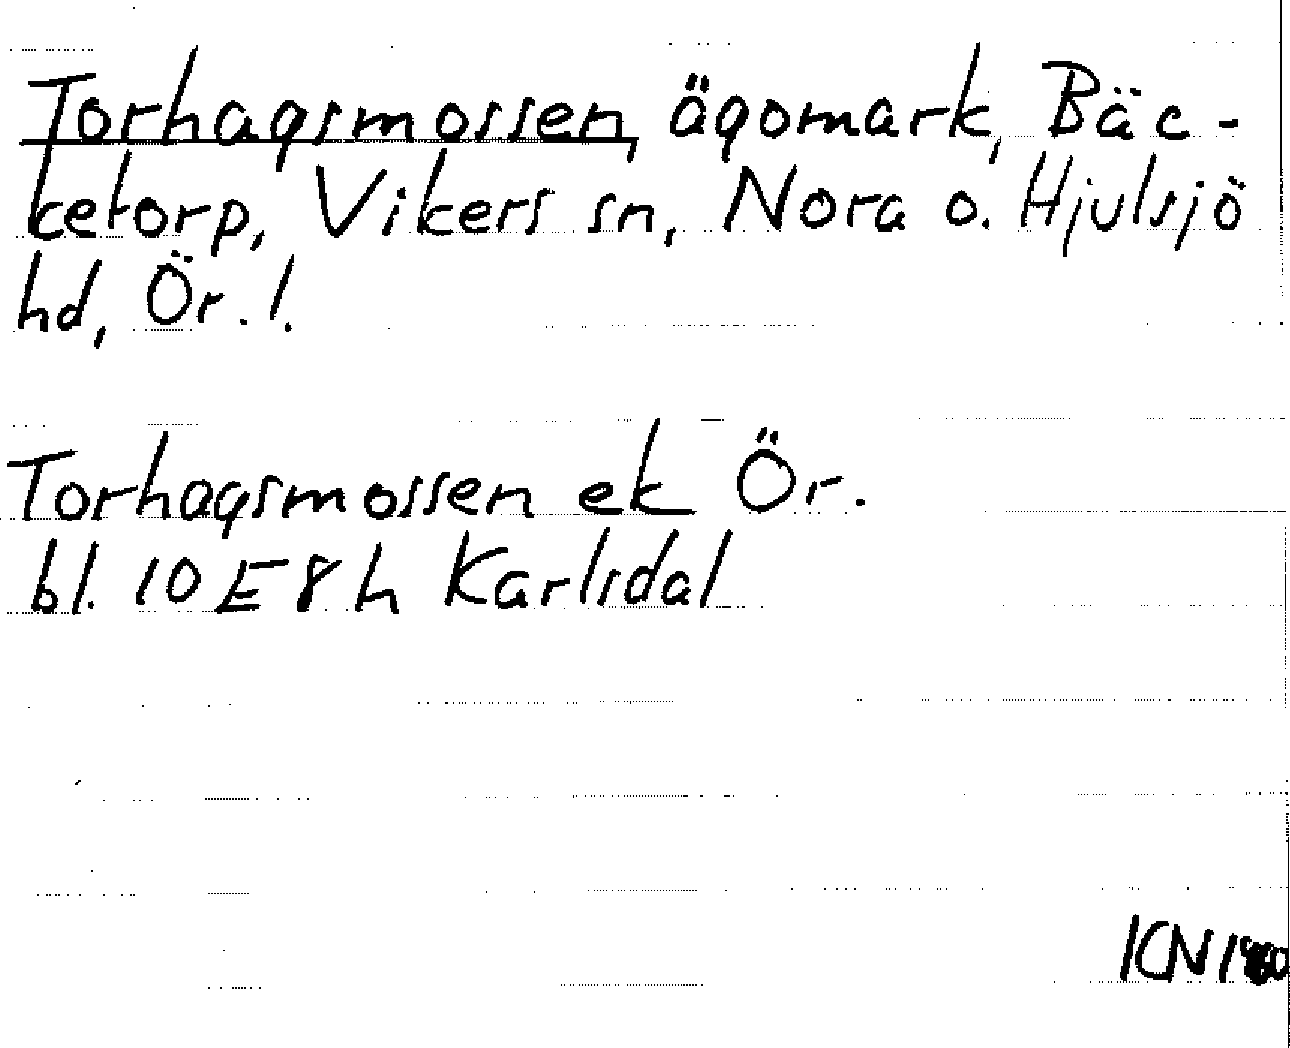 Torhagsmossen, ägomark, Bäc-
ketorp, Vikers sn, Nora o. Hjulsjö
hd, Ör. l.
Torhagsmossen ek Ör.
bl. 10 E 8 h Karlsdal
KN